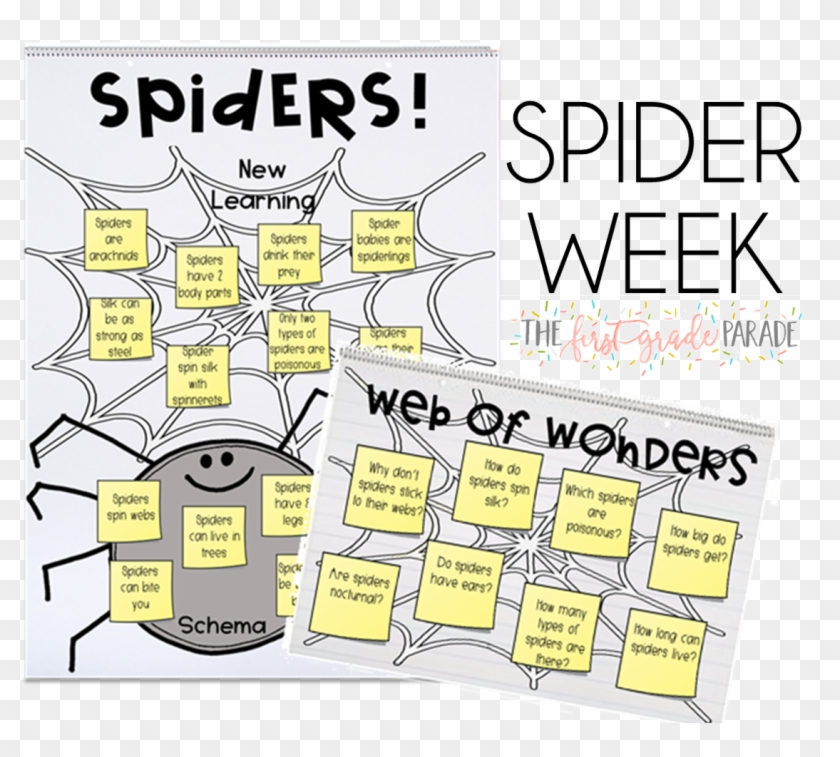 SPiDERS!
New
Learning
Spiders
are
arachnids
Spiders
have 2
body parts
Spiders
drink their
prey
Spider
babies are
spiderlings
Silk can
be as
strong as
steel
Spider
spin silk
with
spinnerets
Only two
types of
spiders are
poisonous
Spiders
their
Spiders
spin webs
Spiders
can live in
trees
Spiders
have 8
legs
Spiders
can bite
you
be
Schema
SPIDER
WEEK
THE first grade PARADE
Web Of Wonders
Why don't
spiders stick
to their webs?
How do
spiders spin
silk?
Which spiders
are
poisonous?
How big do
spiders get?
Are spiders
nocturnal?
Do spiders
have ears?
How many
types of
spiders are
there?
How long can
spiders live?